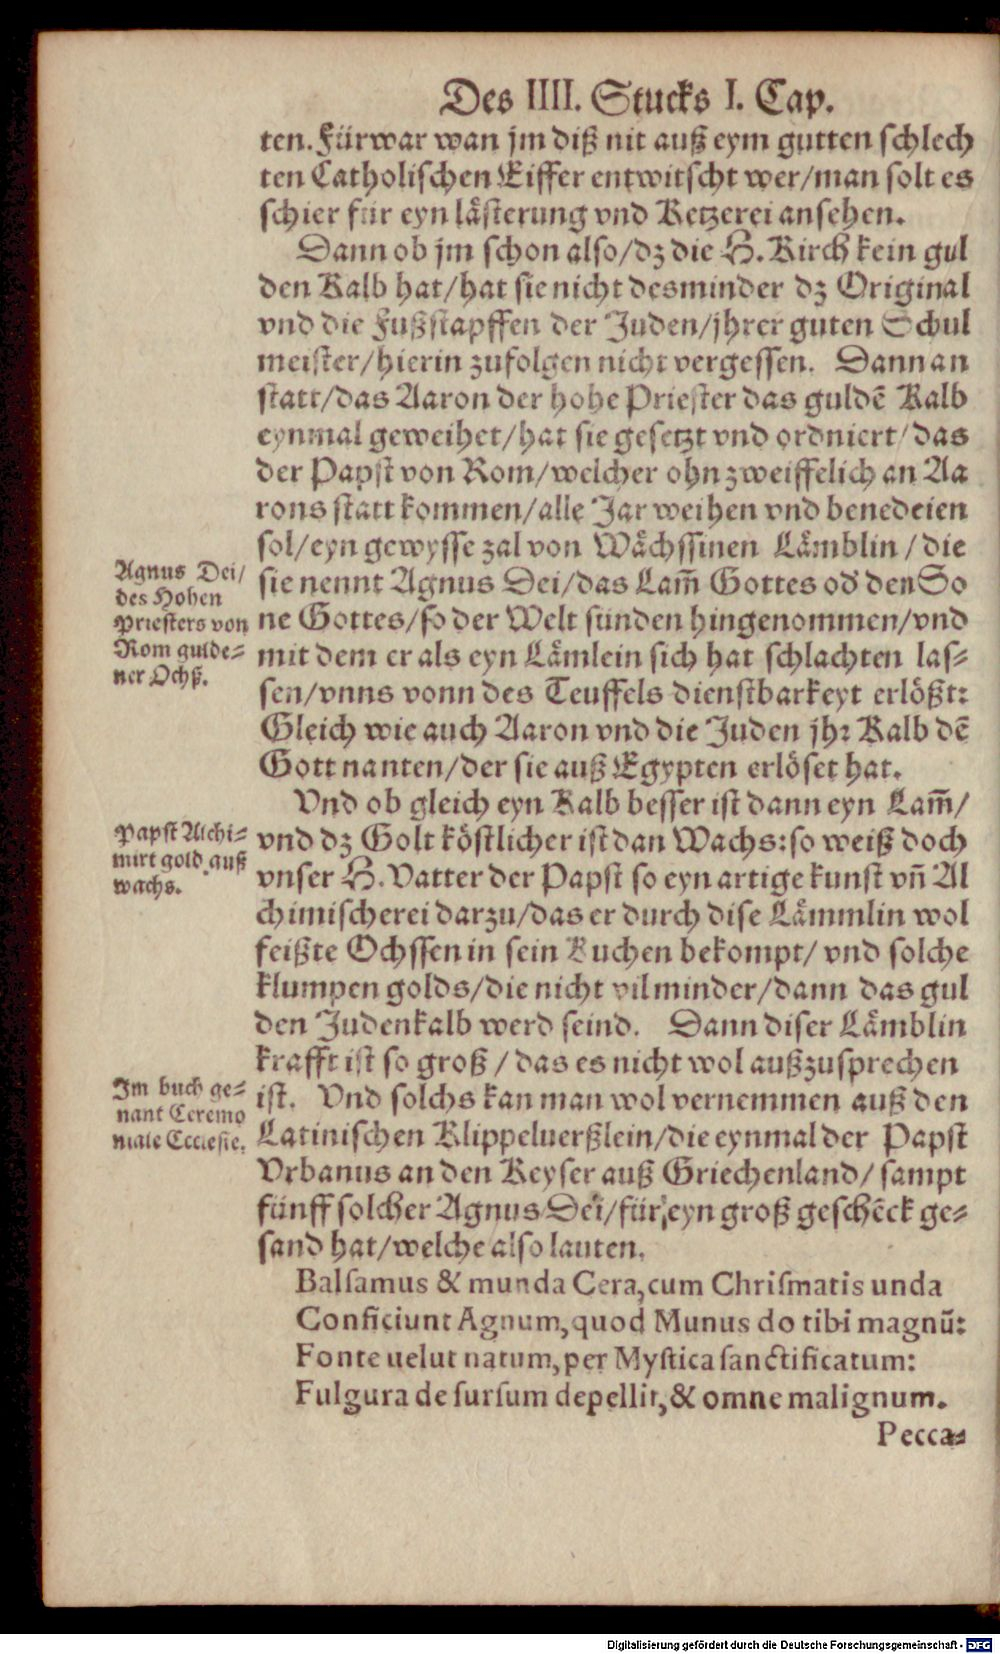 Des IIII. Stucks I. Cap.
ten. Fürwar wan jm diß nit auß eym gutten schlech
ten Catholischen Eiffer entwitscht wer/man solt es
schier für eyn lästerung vnd Ketzerei ansehen.
Dann ob jm schon also/dz die H. Kirch kein gul
den Kalb hat/hat sie nicht desminder dz Original
vnd die Fußstapffen der Juden/jhrer guten Schul
meister/hierin zufolgen nicht vergessen. Dann an
statt/das Aaron der hohe Priester das guldē Kalb
eynmal geweihet/hat sie gesetzt vnd ordniert/das
der Papst von Rom/welcher ohn zweiffelich an Aa
rons statt kommen/alle Jar weihen vnd benedeien
sol/eyn gewysse zal von Wächssinen Lämblin/die
Agnus Dei/
des Hohen
Priesters von
Rom gulde=
ner Ochß.
sie nennt Agnus Dei/das Lam̃ Gottes od' den So
ne Gottes/so der Welt sünden hingenommen/vnd
mit dem er als eyn Lämlein sich hat schlachten las=
sen/vnns vonn des Teuffels dienstbarkeyt erlößt:
Gleich wie auch Aaron vnd die Juden jhr Kalb dē
Gott nanten/der sie auß Egypten erlöset hat.
Vnd ob gleich eyn Kalb besser ist dann eyn Lam̃/
Papst Alchi=
mirt gold auß
wachs.
vnd dz Golt köstlicher ist dan Wachs: so weiß doch
vnser H. Vatter der Papst so eyn artige kunst vn̄ Al
chimischerei darzu/das er durch dise Lämmlin wol
feißte Ochssen in sein Kuchen bekompt/ vnd solche
klumpen golds/die nicht vil minder/dann das gul
den Judenkalb werd seind. Dann diser Lämblin
krafft ist so groß/das es nicht wol außzusprechen
Im buch ge=
nant Ceremo
niale Ecclesie.
ist. Vnd solchs kan man wol vernemmen auß den
Latinischen Klippeluerßlein/die eynmal der Papst
Vrbanus an den Keyser auß Griechenland/sampt
fünff solcher Agnus Dei/für eyn groß geschēck ge=
sand hat/welche also lauten.
Balsamus & munda Cera, cum Chrismatis unda
Conficiunt Agnum, quod Munus do tibi magnū:
Fonte uelut natum, per Mystica sanctificatum:
Fulgura de sursum depellit, & omne malignum.
Pecca=
Digitalisierung gefördert durch die Deutsche Forschungsgemeinschaft - DFG